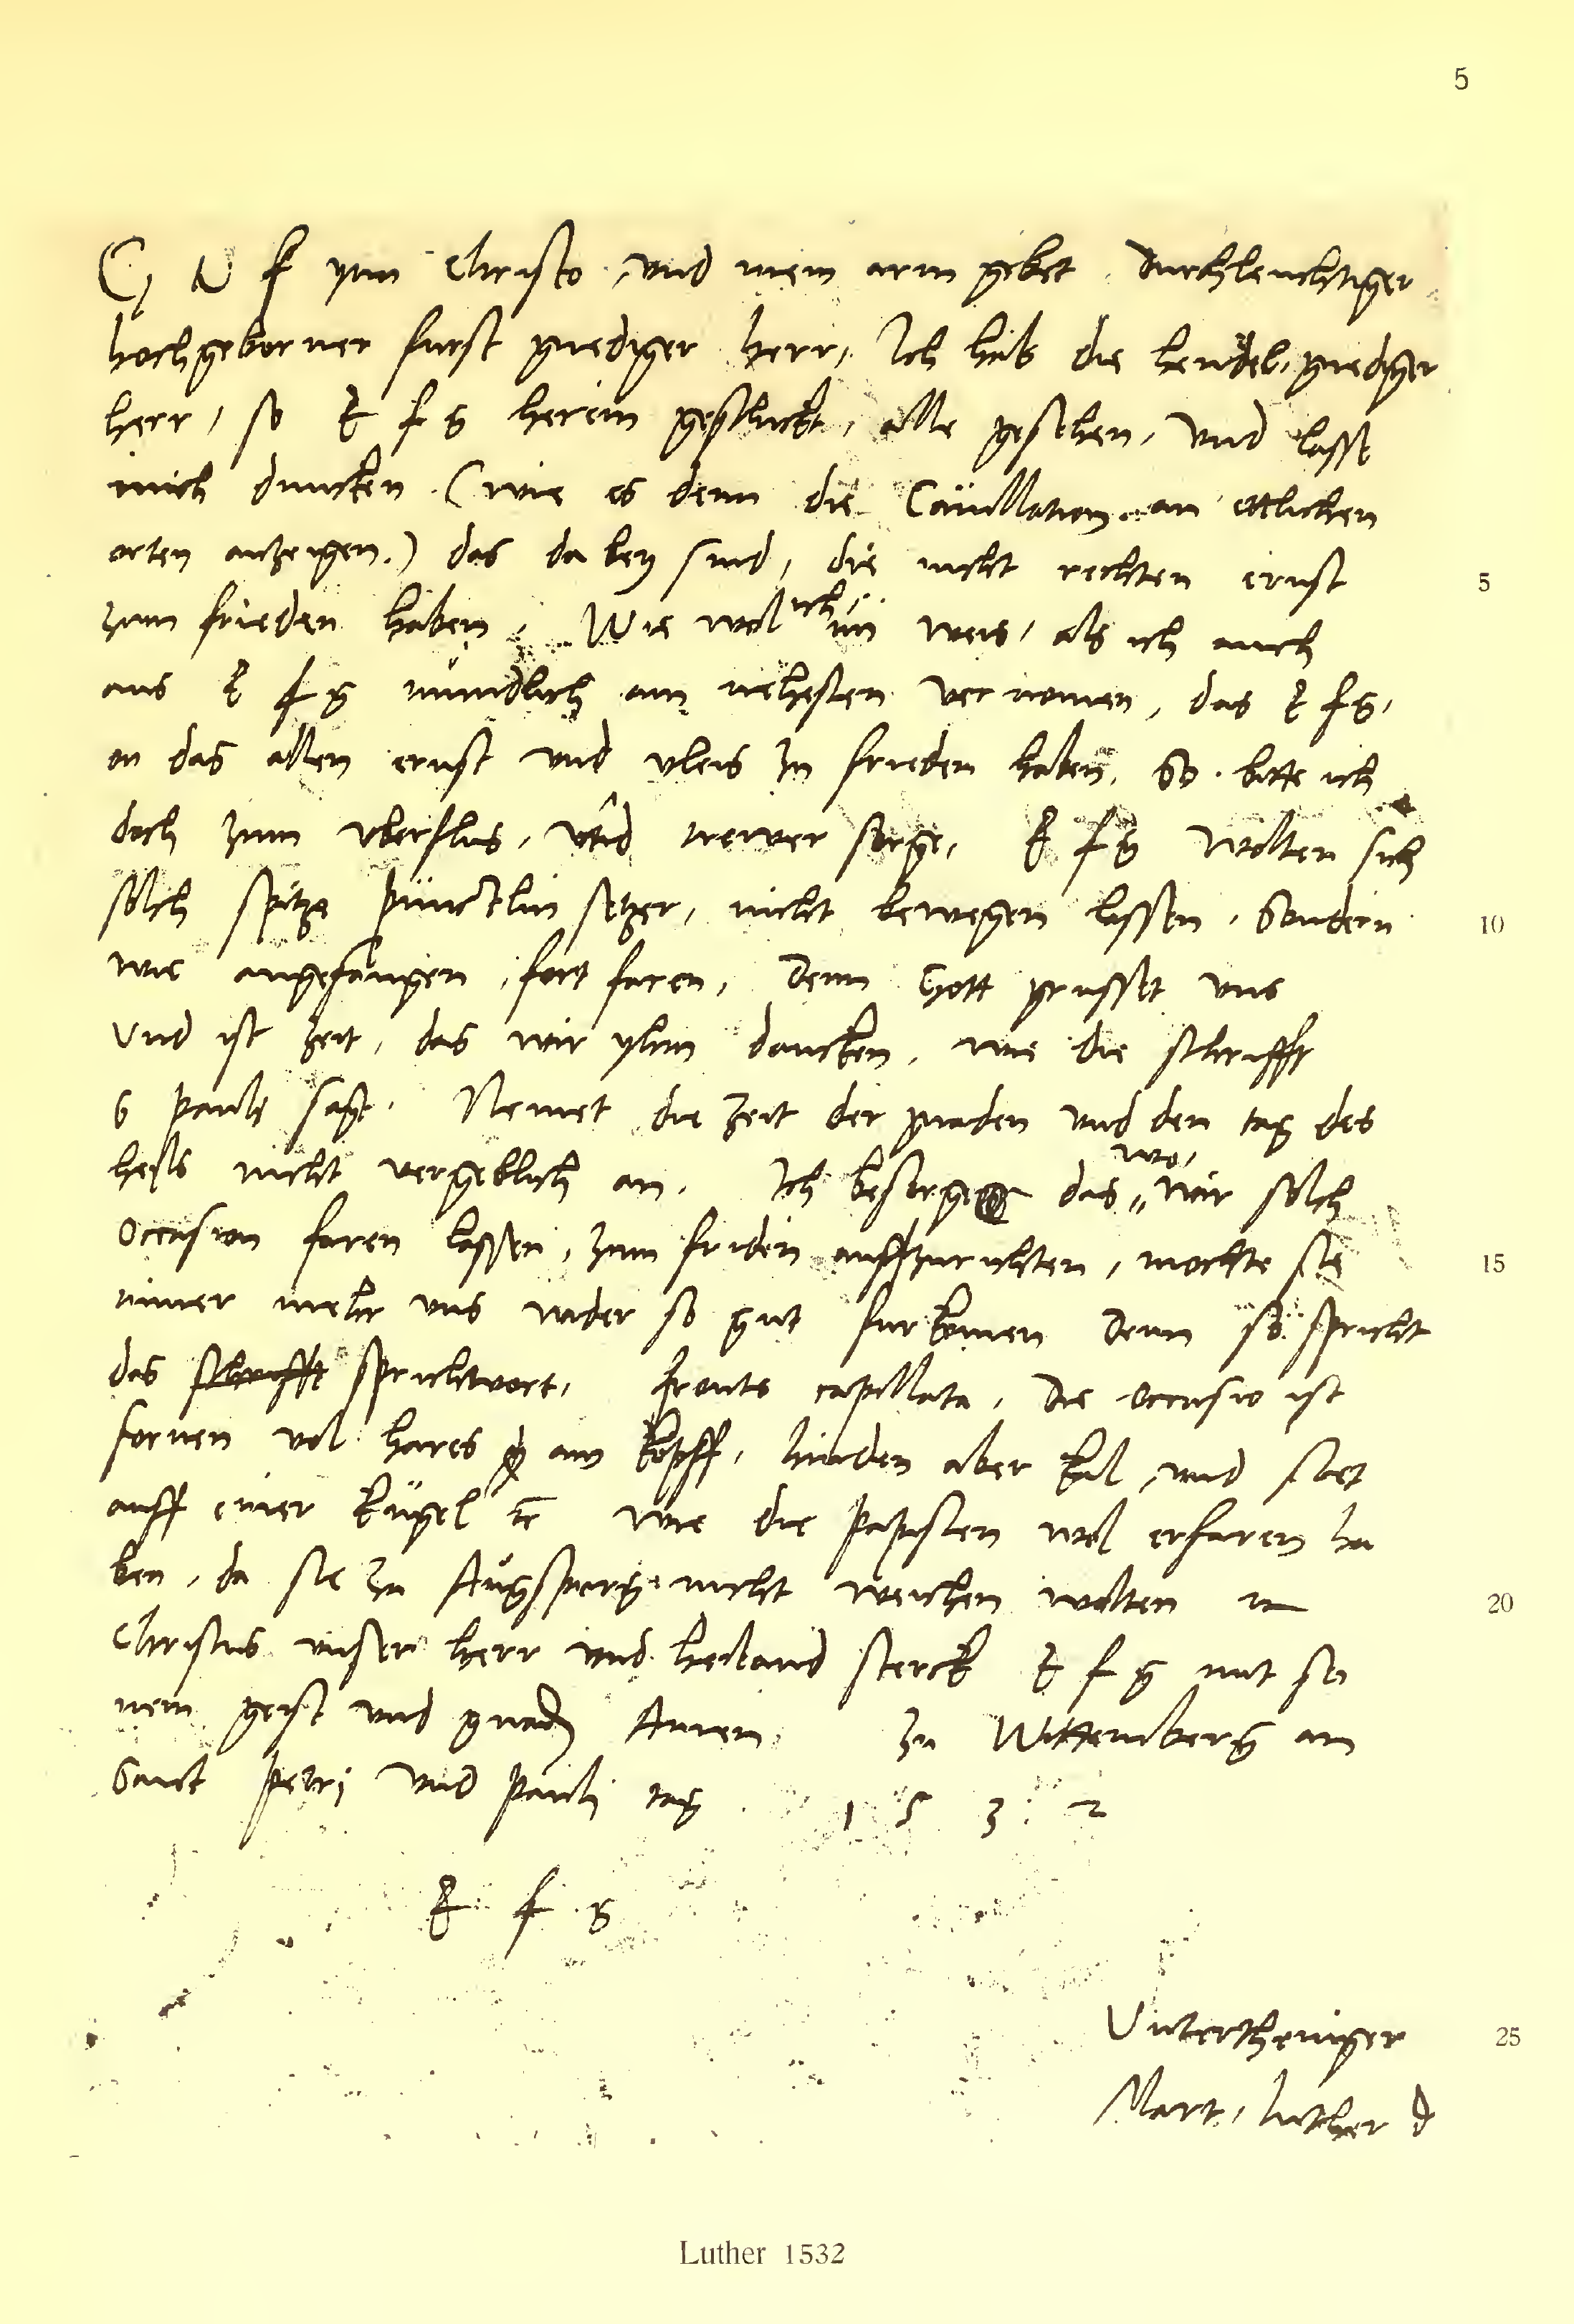 5
G N F ynn Christo, vnd mein arm gebet Durchleuchtiger
hochgeborner furst gnediger herr, Ich hab die hendel, gnediger
herr, so E f g herein geschickt, alle gesehen, Vnd lasse
mich duncken (wie es denn die Cauillation an ettlichen
orten anzeigen.) das da bey sind, die nicht rechten ernst 5
zum frieden haben, Wie wol ich, nu weis, als ich auch
aus E f g mundlich am nehesten vernomen, das E f g,
on das allen ernst vnd vleis zu frieden haben, So bitte ich
doch zum vberflus, vnd trewer sorge, E f g wolten sich
solch spitze punctlin setzer, nicht bewegen lassen, Sondern 10
wie angefangen, fort faren, Denn Gott grusset vns
Vnd ist zeit, das wir yhm dancken, wie die schrifft
S Pauls sagt. Nemet die zeit der gnaden vnd den tag des
heyls nicht vergeblich an. Ich besorge das, wo, wir solch
Occasion faren lassen, zum friden auffzurichten, mochte sie
nimer mehr vns wider so gut furkomen Denn so spricht 15
das schrifft sprichwort, fronte capillata, Die occasio ist
fornen vol hares am kopff, hinden aber kal, vnd stet
auff einer kugel etc Wie die Papisten wol erfaren ha
ben, da sie zu Augspurg nicht weichen wolten 20
Christus vnser herr vnd heiland sterck E f g mit sei
nem geist vnd gnaden Amen Zu Wittemberg am
Sanct Petri vnd Pauli tag 1 5 3 2
E f g
Vntertheniger 25
Mart, Luther D
Luther 1532